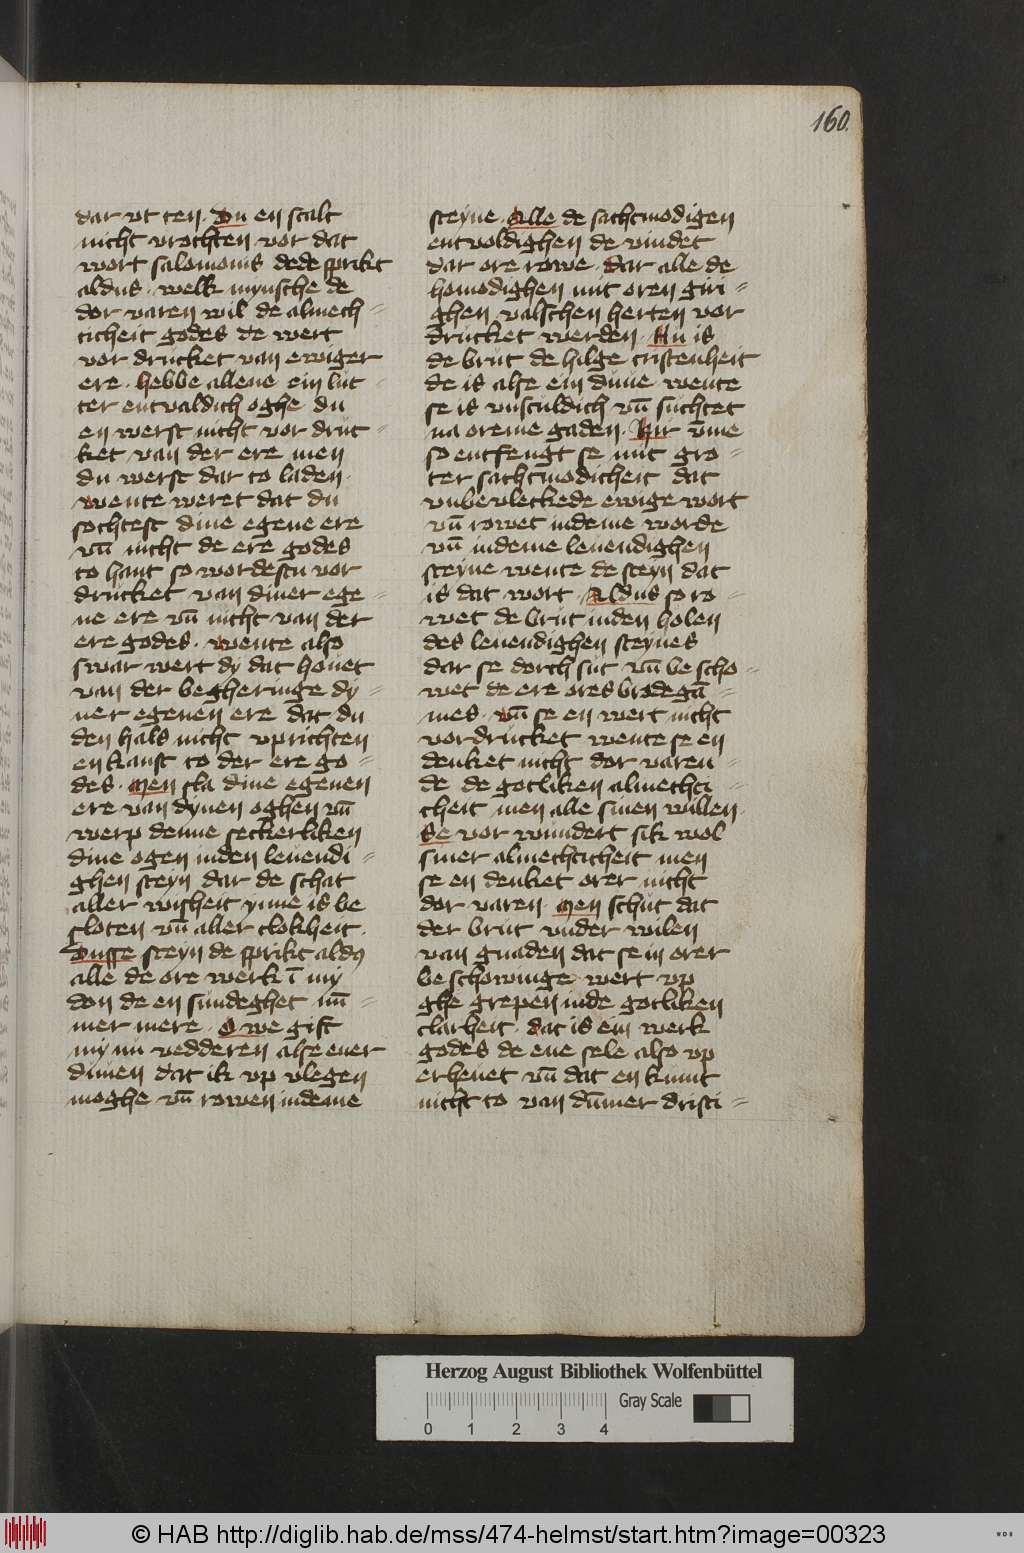 160.
dar vt ten. Du en scalt
nicht vrochten vor dat
wort salomonis dede sprikt
aldus. welk mynsche de
dor varen wil de almech=
ticheit godes de wert
vor drucket van ewiger
ere. hebbe allene ein lut=
ter entvaldich oghe du
en werst nicht vor druc=
ket van der ere men
du werst dar to laden.
wente weret dat du
sochtest dine egene ere
vn̄ nicht de ere godes
to hant so wordestu vor
drucket van diner ege=
ne ere vn̄ nicht van der
ere godes. wente also
swar wert dy dat houet
van der begheringe dy=
ner egenen ere dat du
den hals nicht vprichten
en kanst to der ere go=
des. Men sla dine egenen
ere van dynen oghen vn̄
werp denne seckerliken
dine ogen inden leuendi=
ghen steyn dar de schat
aller wisheit ynne is be
sloten vn̄ aller clokheit.
Dusse steyn de sprikt aldꝰ
alle de ore werk ī my
don de en sundeghet nū=
mer mere. O we gift
my nu vedderen alse ener
duuen dat ik vp vlegen
moghe vn̄ rowen indeme
steyne. Alle de sachtmodigen
entvoldighen de vindet
dar ore rowe. dar alle de
homodighen mit oren giri=
ghen valschen herten vor
drucket werden. Nu is
de brut de hilge cristenheit
de is alse ein duue wente
se is vnsculdich vn̄ suchtet
na oreme gaden. Hir vm̄e
so entfengt se mit gro=
ter sachtmodicheit dat
vnbevleckede ewige wort
vn̄ rowet indeme worde
vn̄ indeme leuendighen
steyne wente de steyn dat
is dat wort. Aldus so ro=
wet de brut inden holen
des leuendighen steynes
dar se dorch sut vn̄ be scho=
wet de ere ores brodegā=
mes. vn̄ se en wert nicht
vordrucket wente se en
denket nicht dor varen=
de de gotliken almechti=
cheit men alle sinen willen.
Se vor wundert sik wol
siner almechticheit men
se en denket orer nicht
dor varen. Men schut dat
der brut vnder wilen
van gnaden dat se in orer
be schowinge wert vp
ghe grepen inde gotliken
clarheit. dat is ein werk
godes de ene sele also vp
erheuet vn̄ dat en kumt
nicht to van dūmer dristi=
Herzog August Bibliothek Wolfenbüttel
Gray Scale
0 1 2 3 4
© HAB http://diglib.hab.de/mss/474-helmst/start.htm?image=00323
WDB